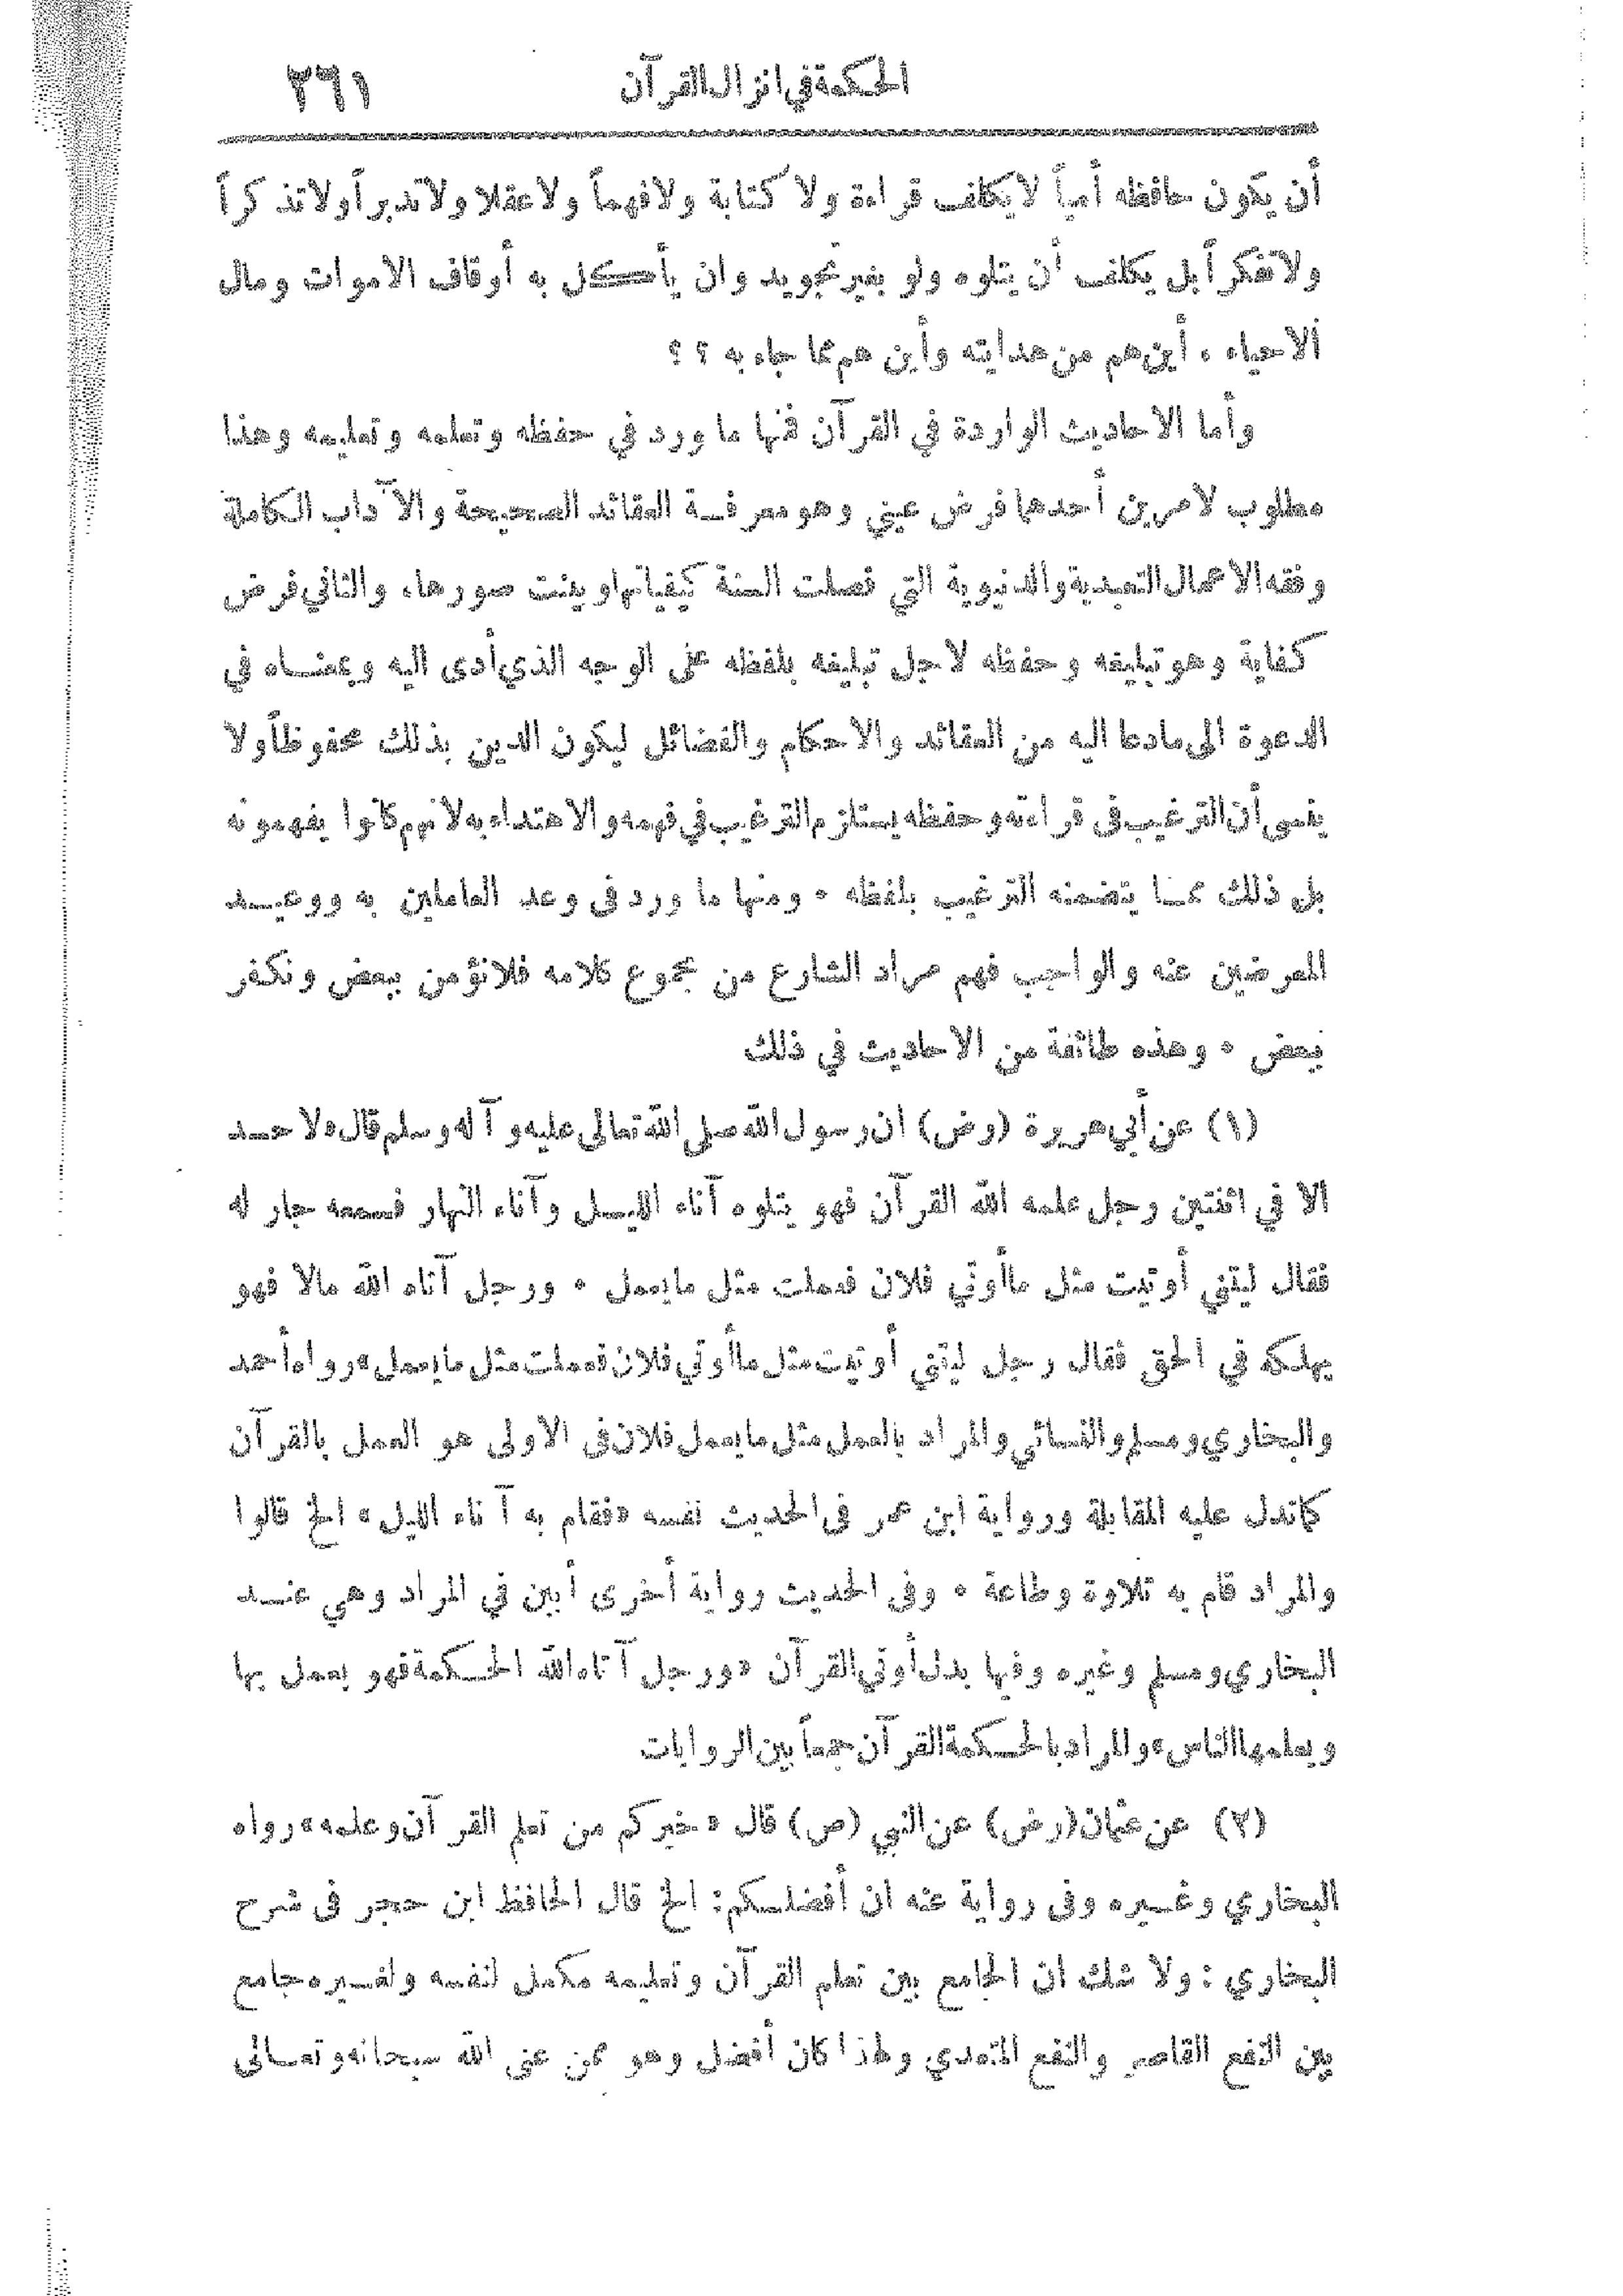 الحكمة في انزال القرآن ٢٦١
أن يكون حافظه أمياً لا يكلف قراءة ولا كتابة ولا فهماً ولا عقلا ولا تدبراً ولا تذكراً
ولا تفكراً بل يكلف أن يتلوه ولو بغير تجويد وان يأكل به أوقاف الاموات ومال
الاحياء ، أين هم من هدايته وأين هم مما جاء به ؟ ؟
وأما الاحاديث الواردة في القرآن فمنها ما ورد في حفظه وتعلمه وتعليمه وهذا
مطلوب لامرين أحدهما فرض عيني وهو معرفة العقائد الصحيحة والآداب الكاملة
وفقه الاعمال التعبدية والدنيوية التي فصلت السنة كيفياتها وبينت صورها، والثاني فرض
كفاية وهو تبليغه وحفظه لاجل تبليغه بلفظه على الوجه الذي أدى اليه وبمعناه في
الدعوة الى مادعا اليه من العقائد والاحكام والفضائل ليكون الدين بذلك محفوظاً ولا
ينسى أن الترغيب فى قراءته وحفظه يستلزم الترغيب في فهمه والاهتداء به لانهم كانوا يفهمونه
بل ذلك مما يتضمنه الترغيب بلفظه . ومنها ما ورد فى وعد العاملين به ووعيد
المعرضين عنه والواجب فهم مراد الشارع من مجموع كلامه فلا نؤمن ببعض ونكفر
ببعض . وهذه طائفة من الاحاديث في ذلك
(١) عن أبي هريرة (رض) ان رسول الله صلى الله تعالى عليه وآله وسلم قال «لا حسد
الا في اثنتين رجل علمه الله القرآن فهو يتلوه آناء الليل وآناء النهار فسمعه جار له
فقال ليتني أوتيت مثل ما أوتي فلان فعملت مثل مايعمل . ورجل آتاه الله مالا فهو
يهلكه في الحق فقال رجل ليتني أوتيت مثل ما أوتي فلان فعملت مثل مايعمل» رواه أحمد
والبخاري ومسلم والنسائي والمراد بالعمل مثل مايعمل فلان فى الاولى هو العمل بالقرآن
كما تدل عليه المقابلة ورواية ابن عمر فى الحديث نفسه «فقام به آناء الليل» الخ قالوا
والمراد قام به تلاوة وطاعة . وفى الحديث رواية أخرى أبين في المراد وهي عند
البخاري ومسلم وغيره وفيها بدل أوتي القرآن «ورجل آتاه الله الحكمة فهو يعمل بها
ويعلمها الناس» والمراد بالحكمة القرآن جمعاً بين الروايات
(٢) عن عثمان (رض) عن النبي (ص) قال «خيركم من تعلم القرآن وعلمه» رواه
البخاري وغيره وفى رواية عنه ان أفضلكم: الخ قال الحافظ ابن حجر فى شرح
البخاري : ولا شك ان الجامع بين تعلم القرآن وتعليمه مكمل لنفسه ولغيره جامع
بين النفع القاصر والنفع المتعدي ولهذا كان أفضل وهو ممن عنى الله سبحانه وتعالى